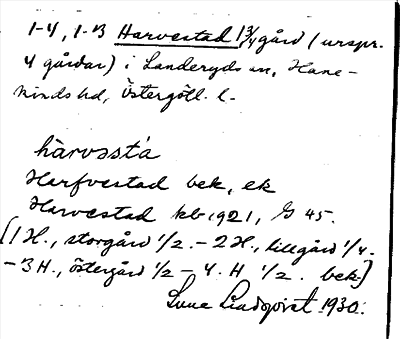 1-4, 1-13 Harvestad 1 3/4 gård (urspr.
4 gårdar) i Landeryds sn, Hane-
kinds hd, Östergötl. l.
hàrvəsta
Harfvestad bek, ek
Harvestad kb 1921, G 45.
[1 H., storgård 1/2. – 2 H., lillgård 1/4.
– 3 H., östergård 1/2 – 4. H 1/2. bek.]
Sune Lindqvist 1930.